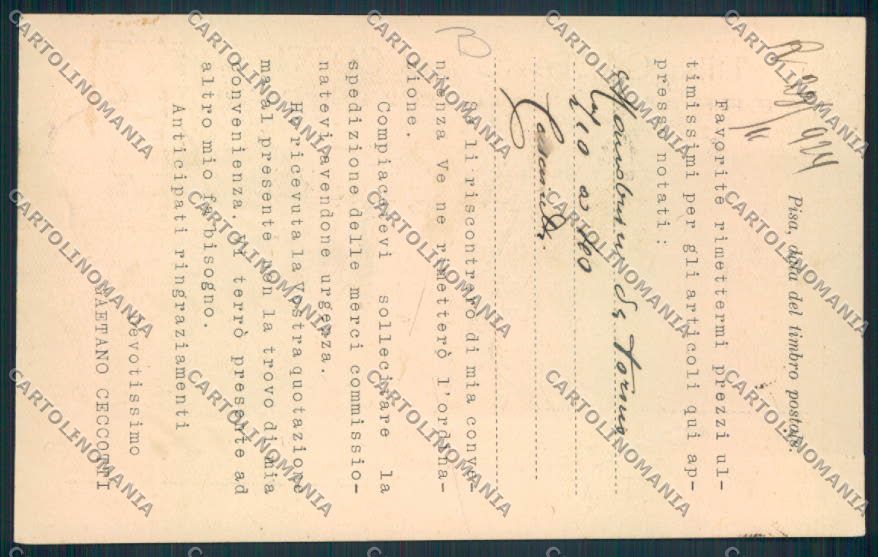 Pisa, data del timbro postale.
Favorite rimettermi prezzi ul-
timissimi per gli articoli qui ap-
presso notati:
Se li riscontrerò di mia conve-
nienza Ve ne rimetterò l'ordina-
zione.
Compiacetevi sollecitare la
spedizione delle merci commissio-
natevi, avendone urgenza.
Ho ricevuta la Vostra quotazione
ma al presente non la trovo di mia
convenienza. Vi terrò presente ad
altro mio fabbisogno.
Anticipati ringraziamenti
Devotissimo
GAETANO CECCOTTI
CARTOLINOMANIA